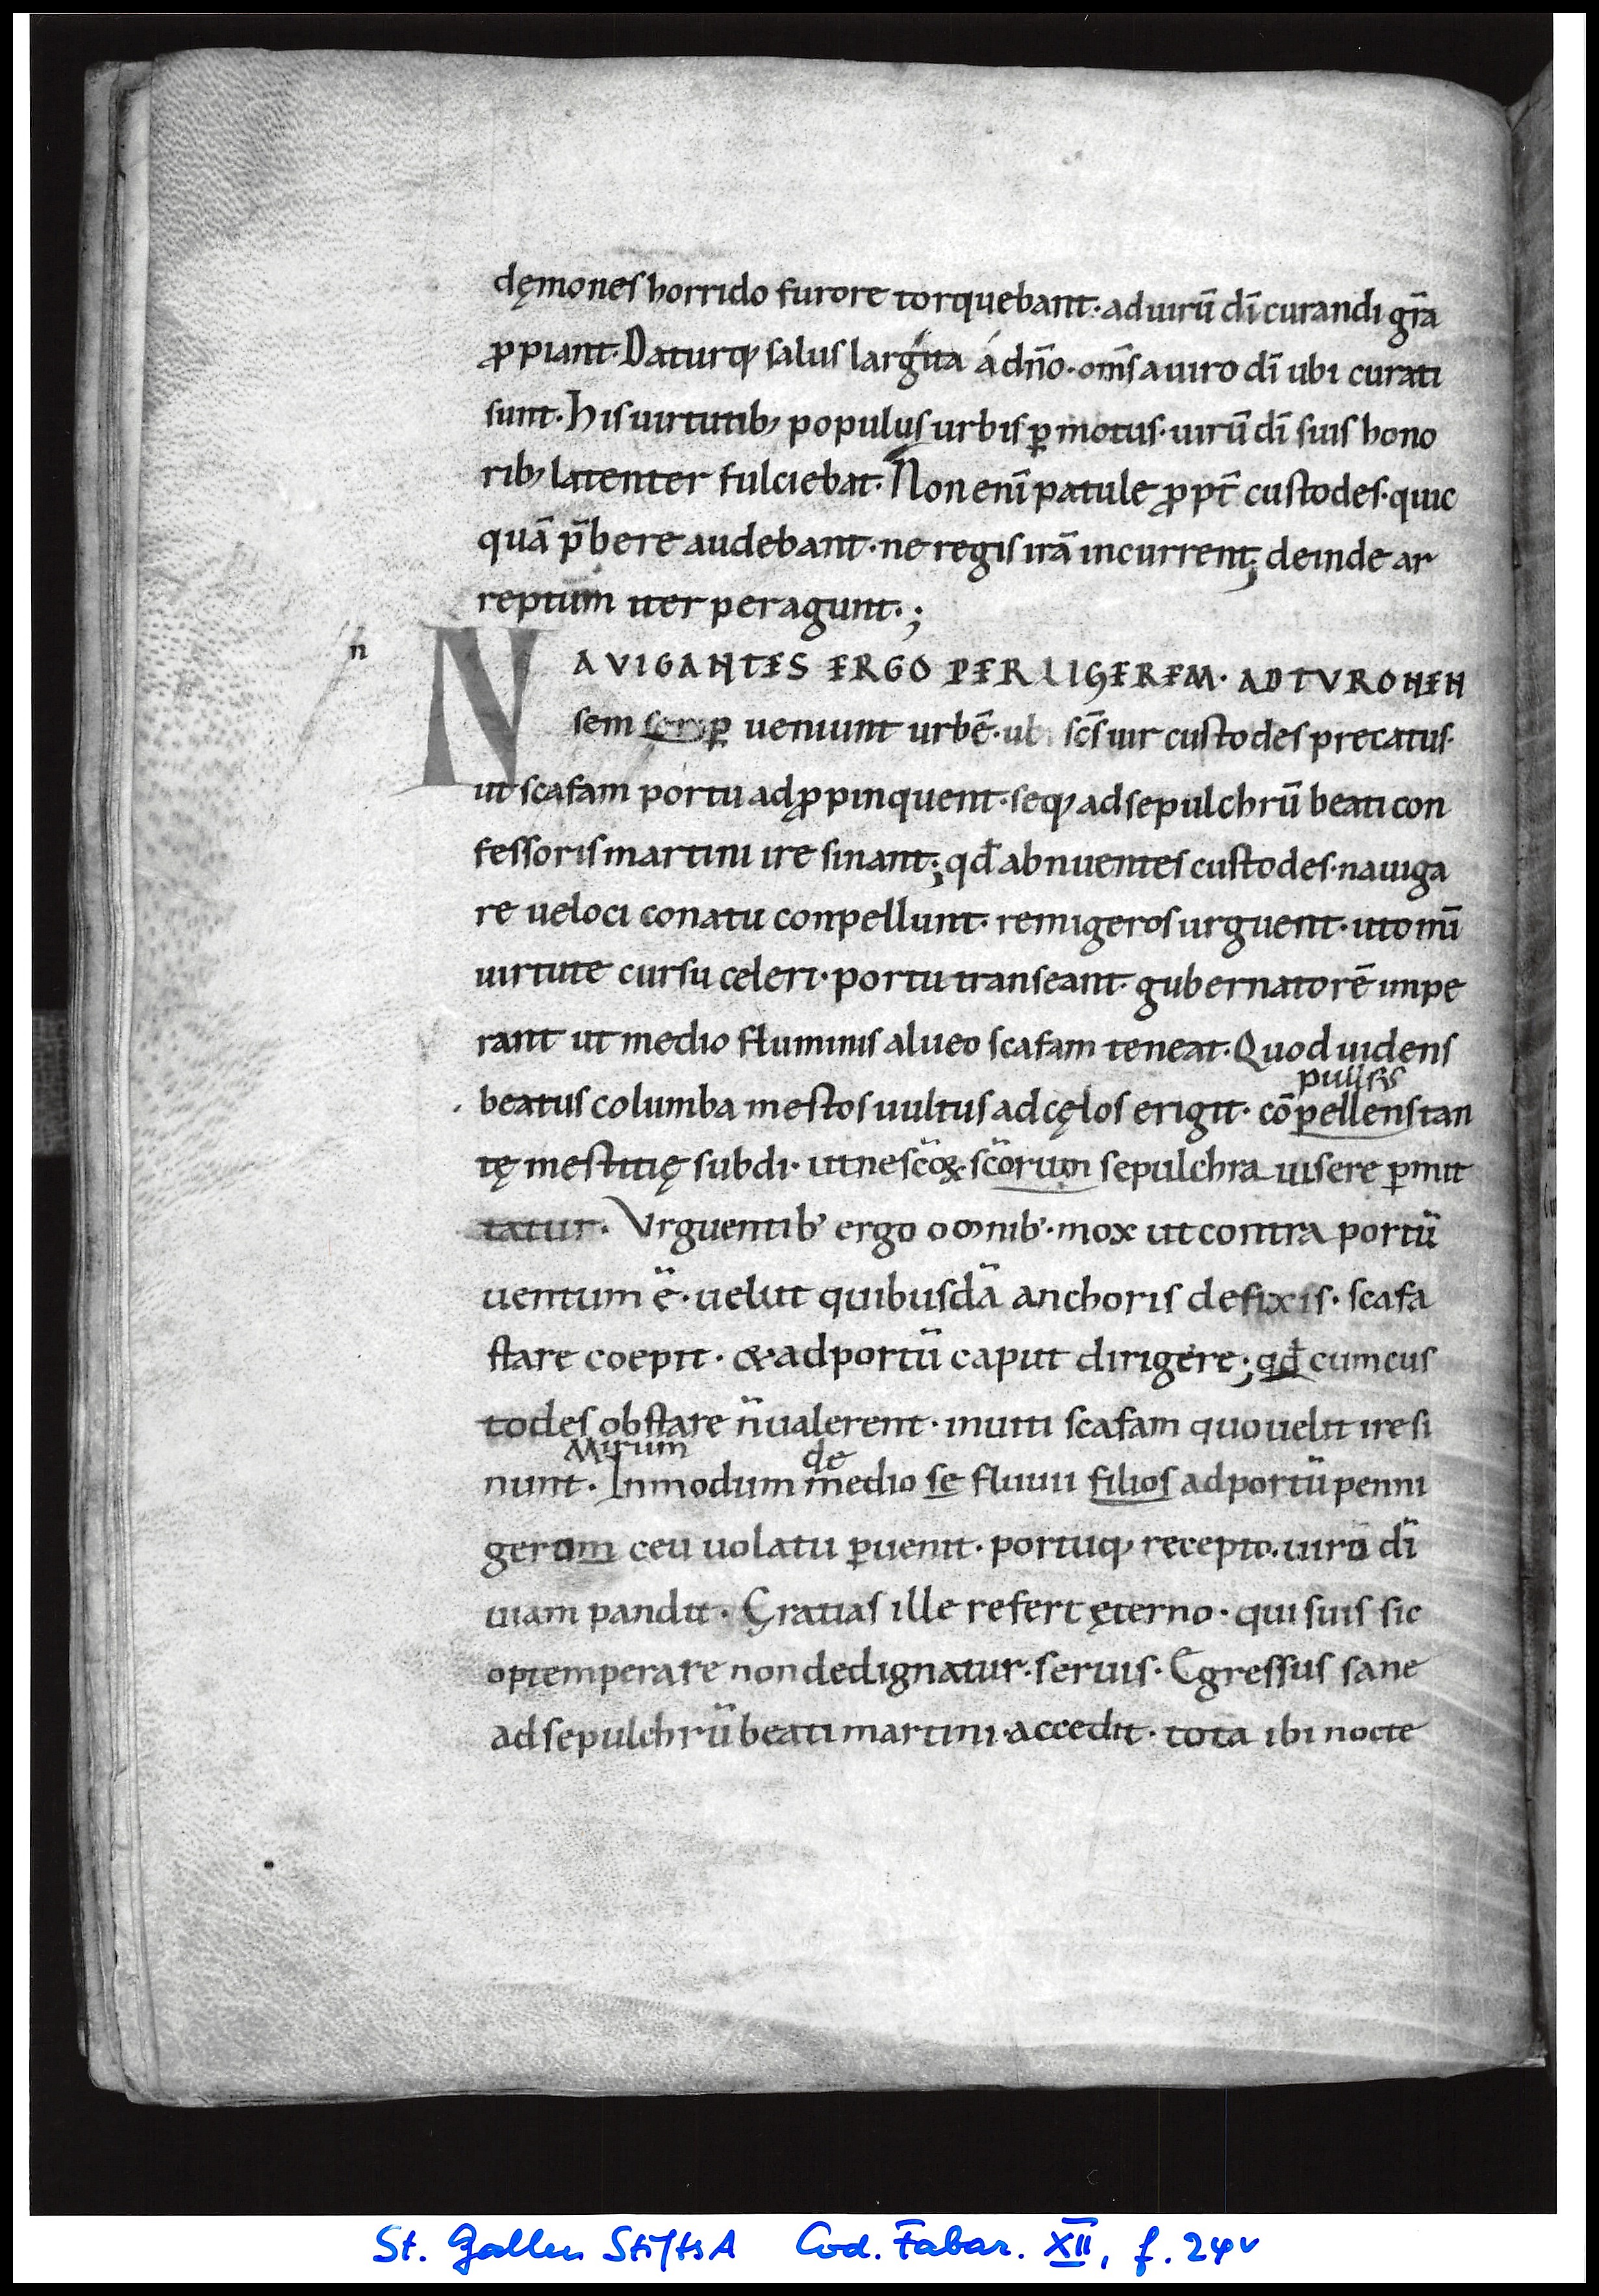 dęmones horrido furore torquebant · ad uirū dī curandi gr̄a
ꝓpiant · Daturq; salus largita á dn̄o · om̄s a uiro dī ubi curati
sunt · His uirtutib; populus urbis ꝑmotus · uirū dī suis hono
rib; latenter fulciebat · Non enī patule ꝓpt̄ custodes · quic
quā p̄bere audebant · ne regis irā incurrent; deinde ar
reptum iter peragunt · ;
n
NAVIGANTES ERGO PER LIGEREM · AD TVRONEN
sem ꝑ ueniunt urbē · ubi sc̄s uir custodes precatus ·
ut scafam portu adꝓpinquent · seq; ad sepulchrū beati con
fessoris martini ire sinant; qđ abnuentes custodes · nauiga
re ueloci conatu conpellunt · remigeros urguent · ut omī
uirtute cursu celeri · portu transeant · gubernatorē impe
rant ut medio fluminis alueo scafam teneat · Quod uidens
pulsus
beatus columba mestos uultus ad cęlos erigit · cōpellens tan
tę mestitię subdi · ut ne sc̄oꝝ sc̄orum sepulchra uisere ꝑmit
tatur · Vrguentib' ergo omnib' · mox ut contra portū
uentum ē · uelut quibusdā anchoris defixis · scafa
stare coepit · & ad portū caput dirigere; qđ cum cus
todes obstare n̄ ualerent · inuiti scafam quo uelit ire si
Mirum de
nunt · In modum medio se fluuii filios ad portū penni
gerum ceu uolatu ꝑuenit · portuq; recepto · uiro dī
uiam pandit · Gratias ille refert ęterno · qui suis sic
optemperare non dedignatur · seruis · Egressus sane
ad sepulchrū beati martini · accedit · tota ibi nocte
St. Gallen StiftsA Cod. Fabar. XII, f. 24v